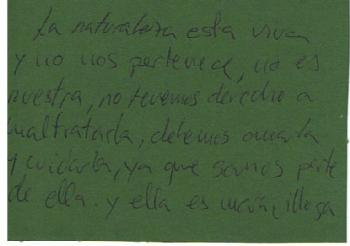 La naturaleza esta viva
y no nos pertenece, no es
nuestra, no tenemos derecho a
maltratarla, debemos amarla
y cuidarla, ya que somos parte
de ella. y ella es